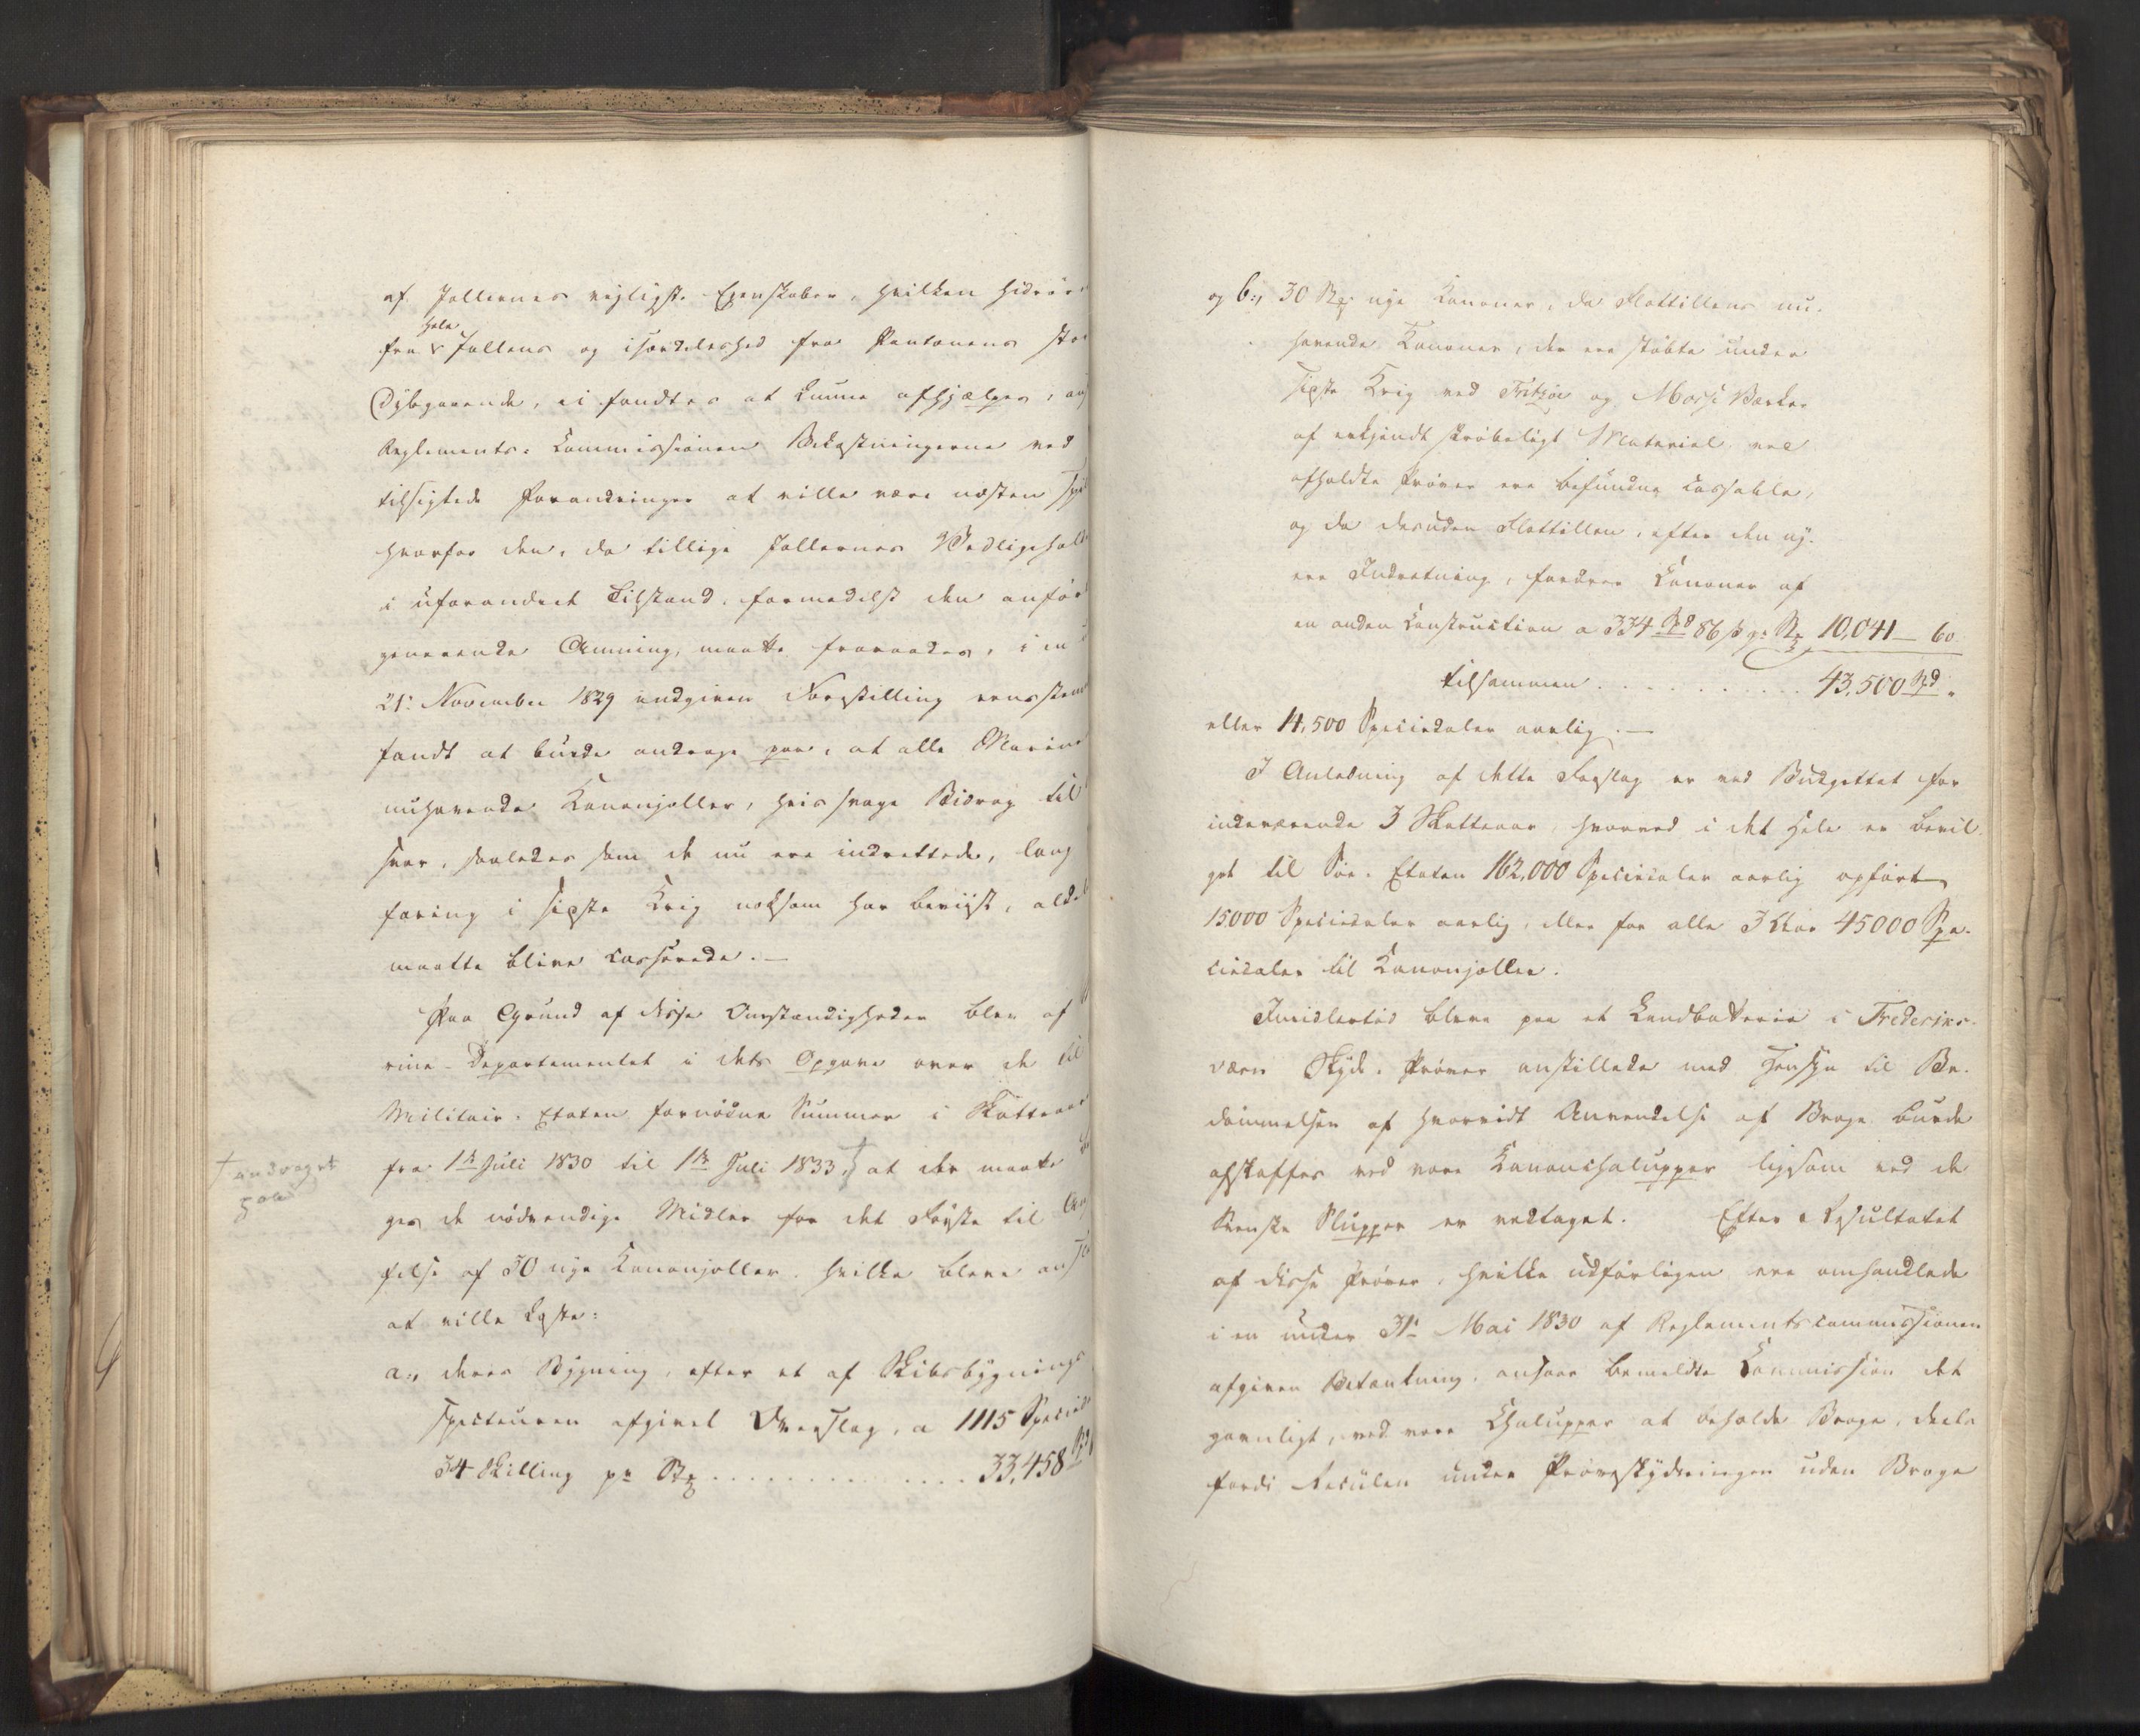 af Jollernes vigtigste Egenskaber, hvilken hidrör
hele
fra Jollens og isærdeleshed fra Pontonens sto
Dybgaaende, ei fandtes at kunne afhjælpes, an
Reglements-Commissionen Bekostningerne ved
tilsigtede Forandringer at ville være næsten spil
hvorfor den, da tillige Jollernes Vedligehold
i uforandret Tilstand, formedelst den anför
generende Amning, maatte fraraades, i en
21: November 1829 indgiven Forestilling eensstem
fandt at burde andrage paa, at alle Marine
nuhavende Kanonjoller, hvis svage Bidrag til
svar, saaledes som de nu ere indrettede, lang
faring i sidste Krig noksom har beviist, aldel
maatte blive casserede.—
Paa Grund af disse Omstændigheder blev af
rine-Departementet i dets Opgave over de til
Militair-Etaten fornödne Summer i Skatteaar
† andraget
paa
fra 1ste Juli 1830 til 1ste Juli 1833,† at der maatte
ges de nödvendige Midler for det Förste til An
felse af 30 nye Kanonjoller, hvilke bleve ans
at ville koste:
a., deres Bygning, efter et af Skibsbygnings
specteuren afgivet Overslag, a 1115 Specied
34 Skilling pr Stk . . . . . . . . . . . . . . 33,458 Spd
og b:, 30 Stk. nye Kanoner, da Flottillens nu-
havende Kanoner, der ere stöbte under
sidste Krig ved Fritzöe og Mosse Værker
af erkjendt skröbeligt Material ved
afholdte Pröver ere befundne cassable,
og da desuden Flottillen, efter den ny-
ere Indretning, fordrer Kanoner af
en anden Construction a 334 Spd 86 s pr. St. 10,041 — 60.
tilsammen . . . . . . . . . . . 43,500 Spd „
eller 14,500 Speciedaler aarlig.—
I Anledning af dette Forslag er ved Budgettet for
indeværende 3 Skatteaar, hvorved i det Hele er bevil-
get til Söe-Etaten 162,000 Speciedaler aarlig opfört
15000 Speciedaler aarlig, eller for alle 3 Aar 45000 Spe-
ciedaler til Kanonjoller.
Imidlertid bleve paa et Landbatterie i Frederiks-
værn Skyde-Pröver anstillede med Hensyn til Be-
dömmelsen af hvorvidt Anvendelse af Brage burde
afskaffes ved vore Kanonchalupper ligesom ved de
Svenske Slupper er vedtaget. Efter Resultatet
af disse Pröver, hvilke udförligen ere omhandlede
i en under 31: Mai 1830 af Reglementscommissionen
afgiven Betænkning, ansaae bemeldte Commission det
gavnligt, ved vore Chalupper at beholde Brage, deels
fordi Reculen under Pröveskydningen uden Brage